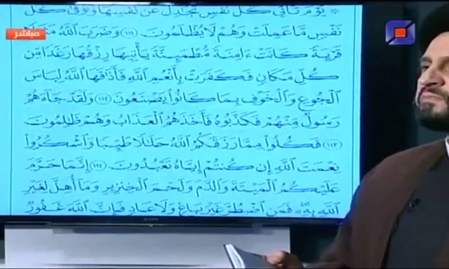 مباشر
يَوْمَ تَأْتِي كُلُّ نَفْسٍ تُجَادِلُ عَن نَّفْسِهَا وَتُوَفَّىٰ كُلُّ
نَفْسٍ مَّا عَمِلَتْ وَهُمْ لَا يُظْلَمُونَ (١١١) وَضَرَبَ اللَّهُ مَثَلًا
قَرْيَةً كَانَتْ ءَامِنَةً مُّطْمَئِنَّةً يَأْتِيهَا رِزْقُهَا رَغَدًا مِّن
كُلِّ مَكَانٍ فَكَفَرَتْ بِأَنْعُمِ اللَّهِ فَأَذَاقَهَا اللَّهُ لِبَاسَ
الْجُوعِ وَالْخَوْفِ بِمَا كَانُوا يَصْنَعُونَ (١١٢) وَلَقَدْ جَاءَهُمْ
رَسُولٌ مِّنْهُمْ فَكَذَّبُوهُ فَأَخَذَهُمُ الْعَذَابُ وَهُمْ ظَالِمُونَ
(١١٣) فَكُلُوا مِمَّا رَزَقَكُمُ اللَّهُ حَلَالًا طَيِّبًا وَاشْكُرُوا
نِعْمَتَ اللَّهِ إِن كُنتُمْ إِيَّاهُ تَعْبُدُونَ (١١٤) إِنَّمَا حَرَّمَ
عَلَيْكُمُ الْمَيْتَةَ وَالدَّمَ وَلَحْمَ الْخِنزِيرِ وَمَا أُهِلَّ لِغَيْرِ
اللَّهِ بِهِ فَمَنِ اضْطُرَّ غَيْرَ بَاغٍ وَلَا عَادٍ فَإِنَّ اللَّهَ غَفُورٌ